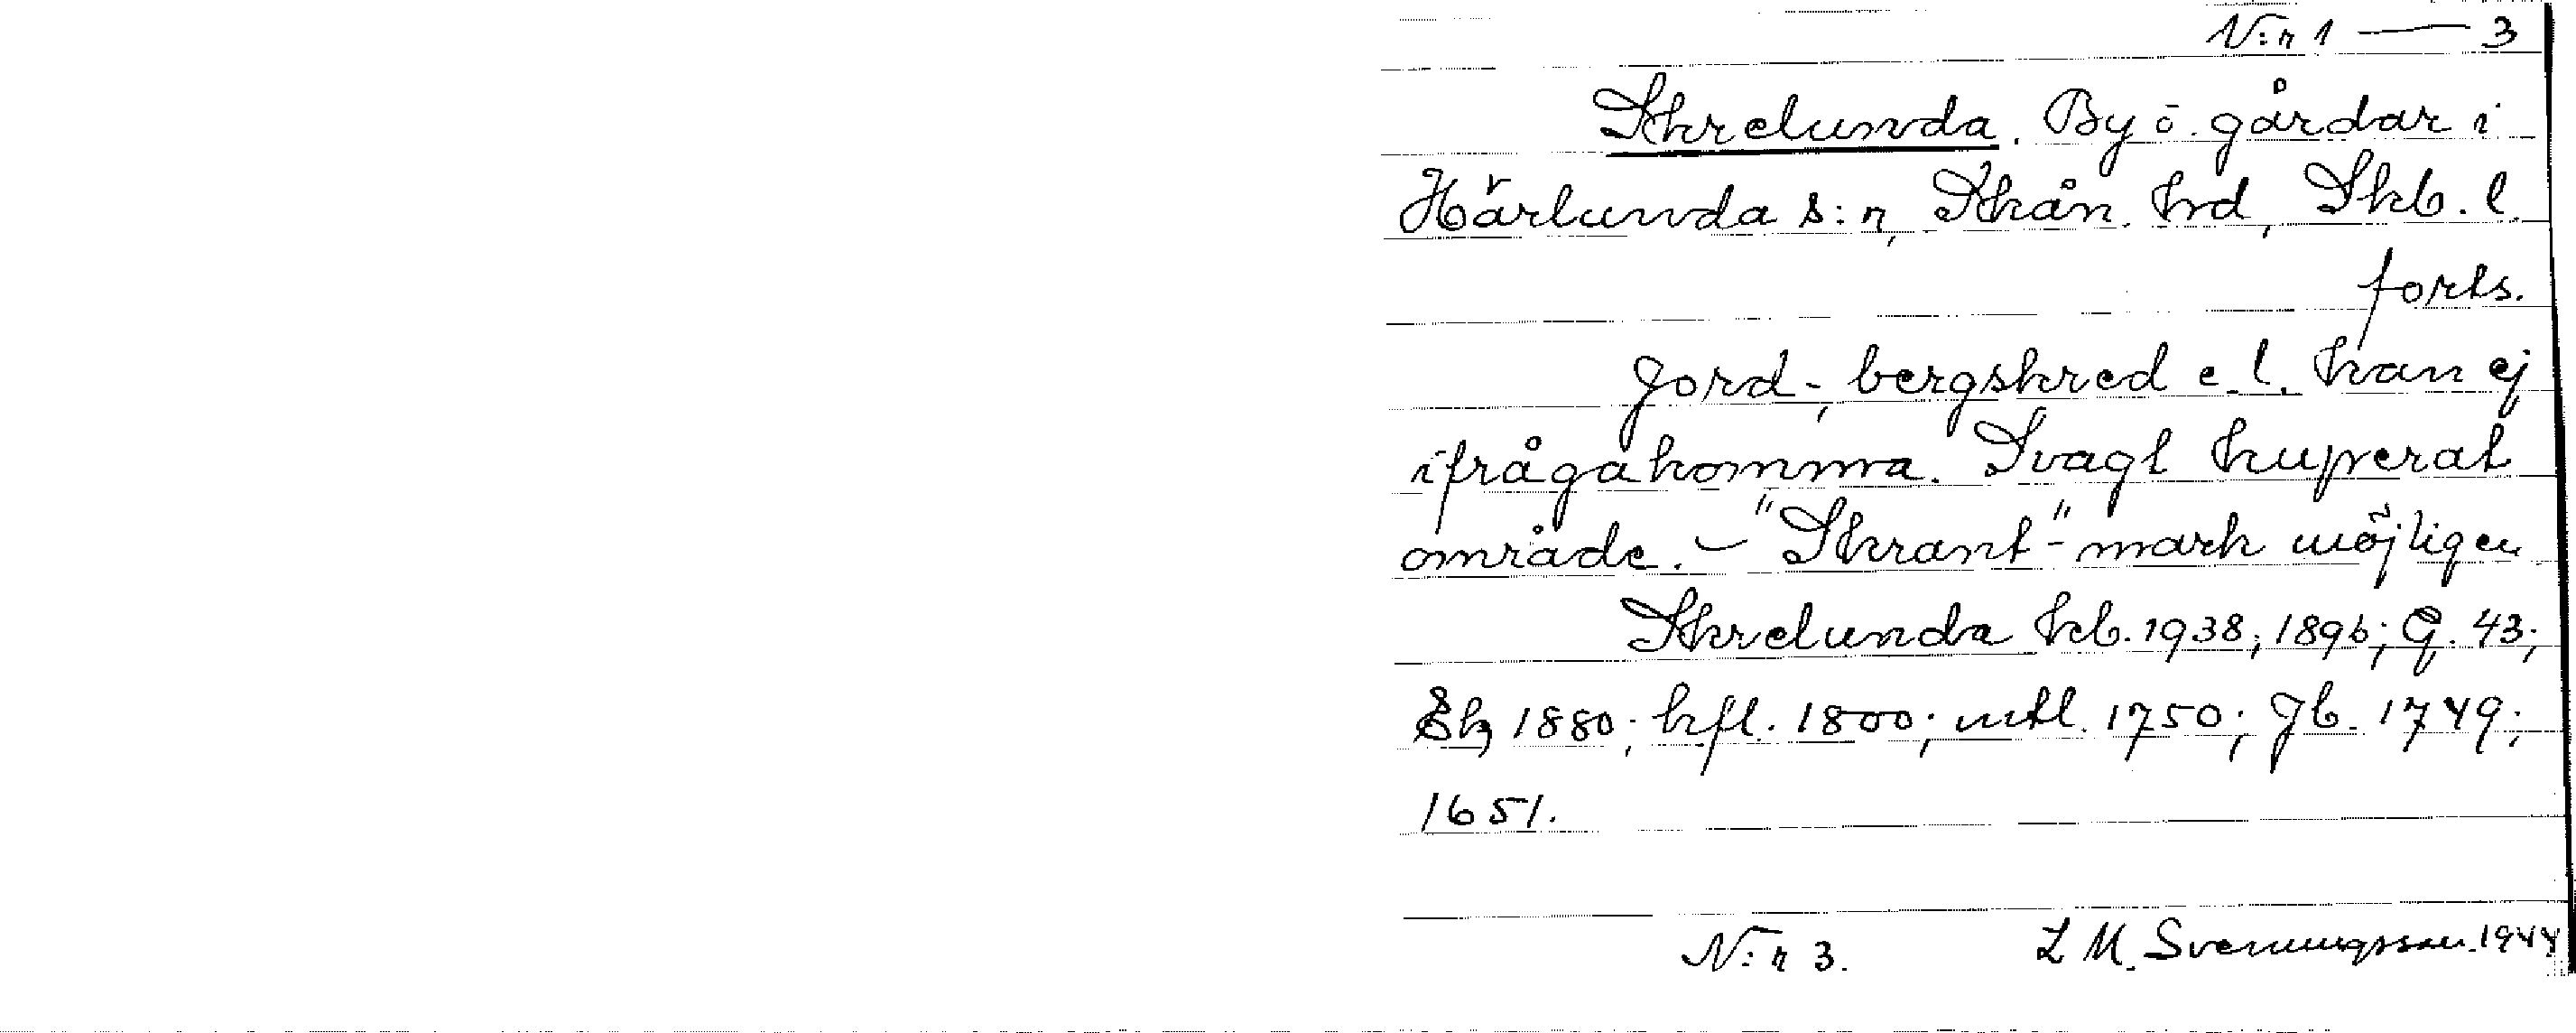 N:r 1 — 3
Skrelunda. By o. gårdar i
Härlunda s:n, Skån. hd, Skb. l.
forts.
Jord-, bergskred e. l. kan ej
ifrågakomma. Svagt kuperat
område. – "Skrant"-mark möjligen
Skrelunda kb. 1938, 1896; G. 43;
Ek 1880; kfl. 1800; mtl. 1750; Jb. 1749;
1651.
N:r 3. L M. Svenungsson 1944